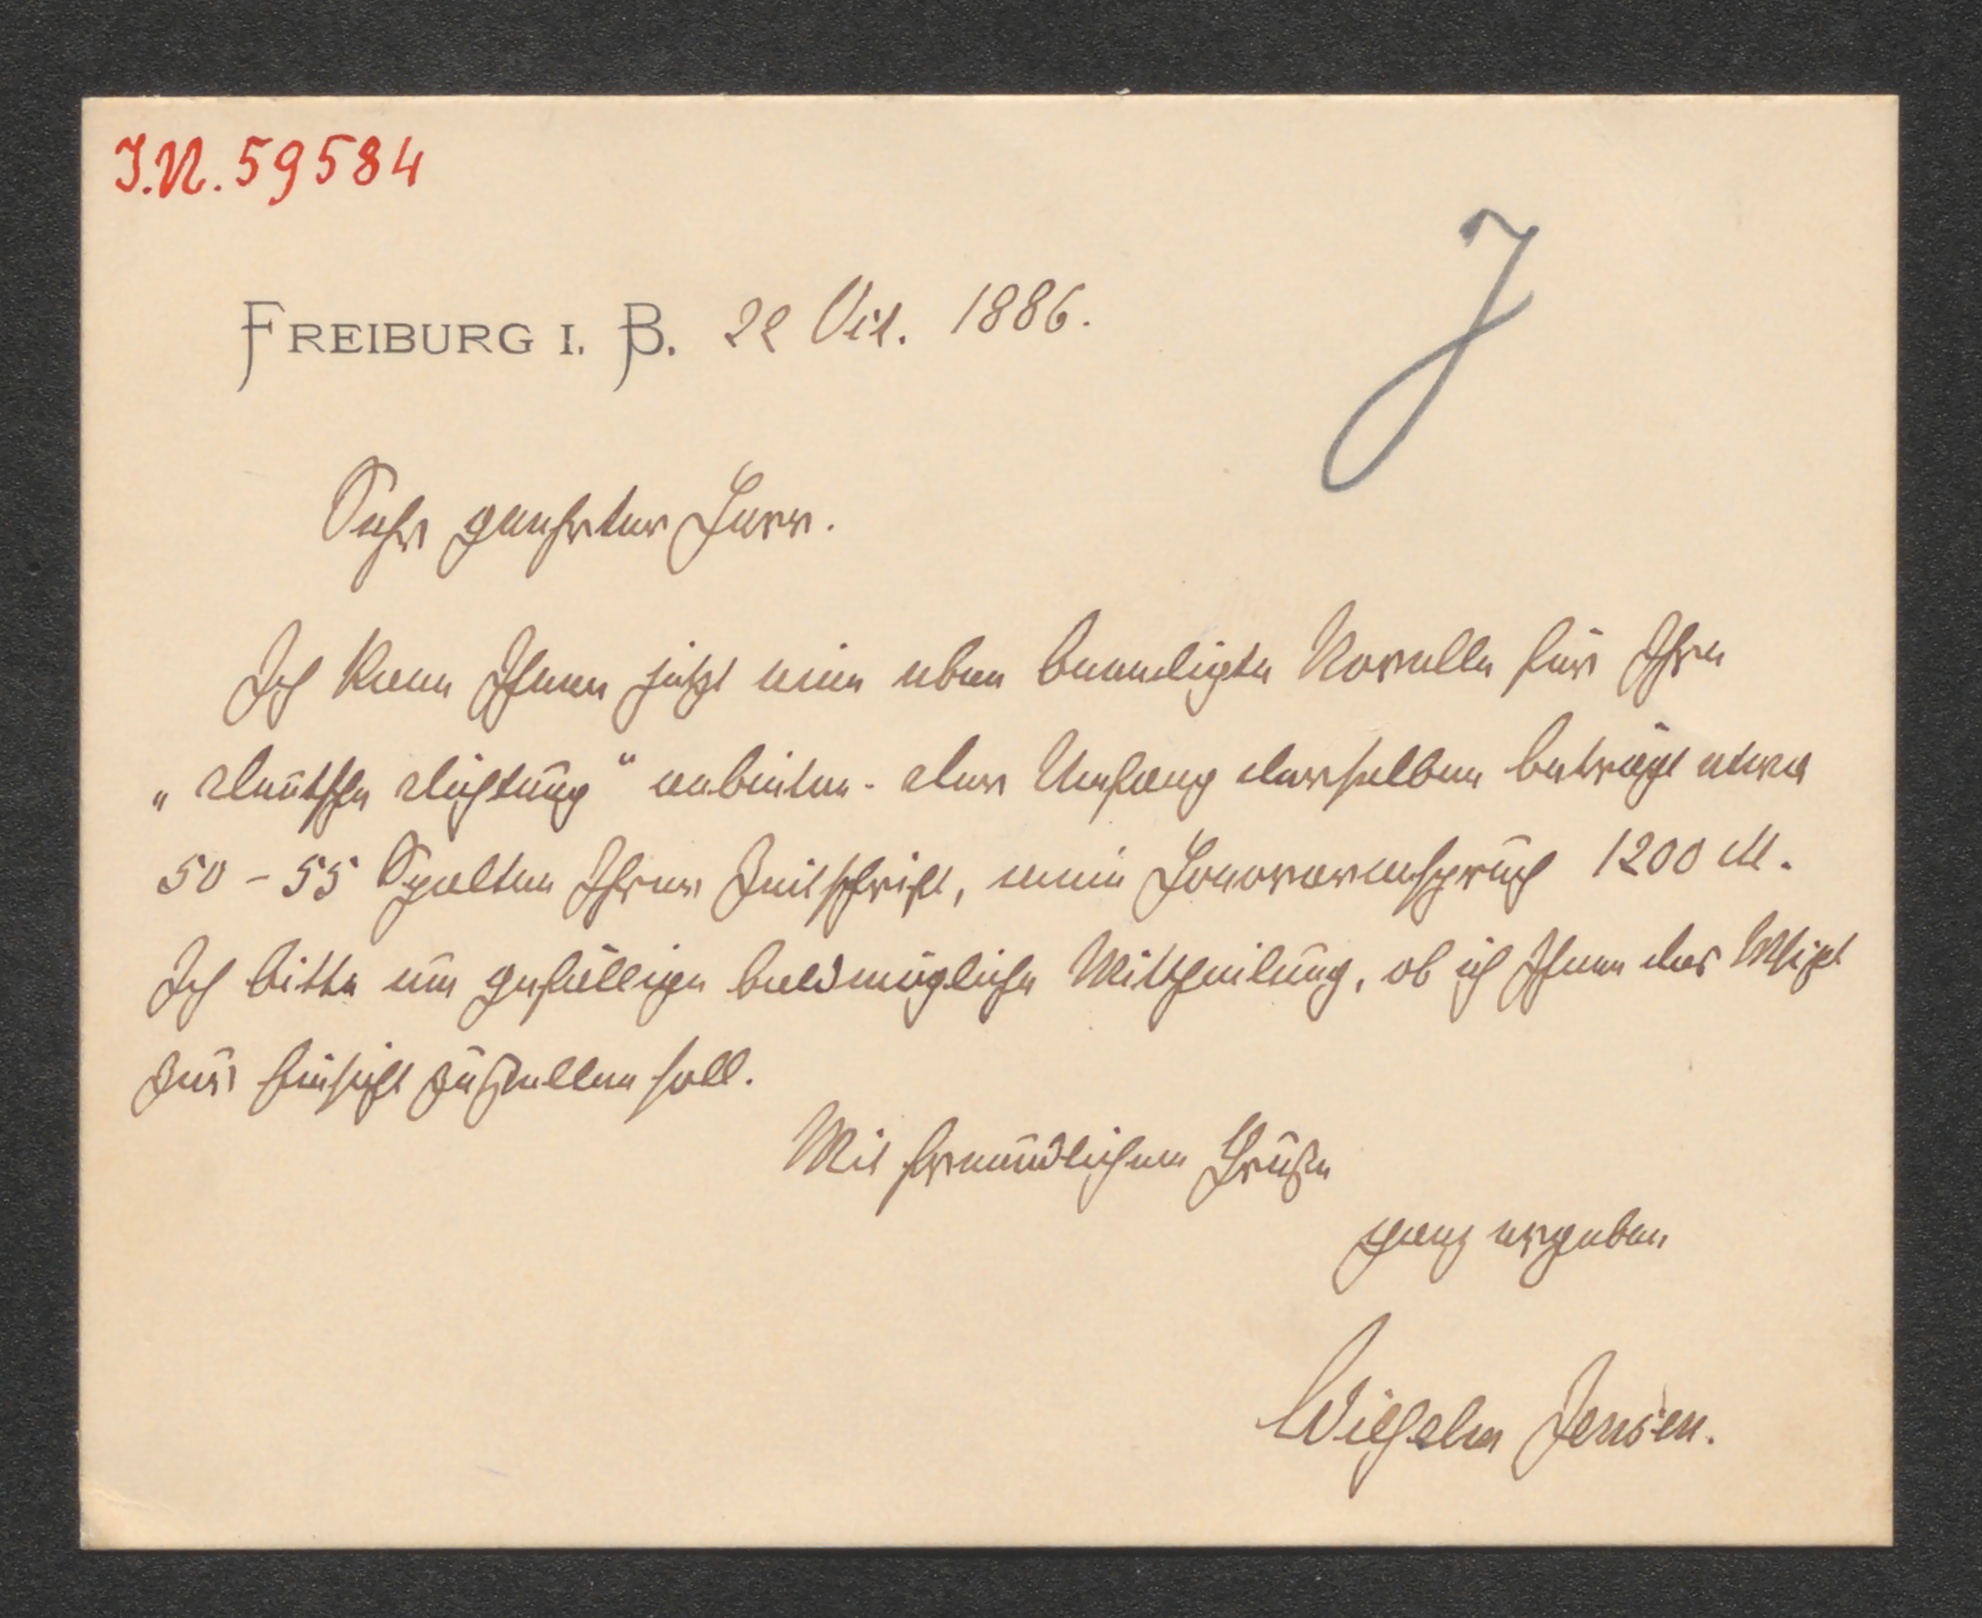 I.N. 59584
J
FREIBURG I. B. 22 Oct. 1886.
Sehr geehrter Herr.
Ich kann Ihnen jetzt eine eben beendigte Novelle für Ihre
„Deutsche Dichtung“ anbieten. Der Umfang derselben beträgt etwa
50 – 55 Spalten Ihrer Zeitschrift, mein Honoraranspruch 1200 M.
Ich bitte um gefällige baldmöglichste Mittheilung, ob ich Ihnen das Mscpt
zur Einsicht zustellen soll.
Mit freundlichem Gruße
ganz ergeben
Wilhelm Jensen.